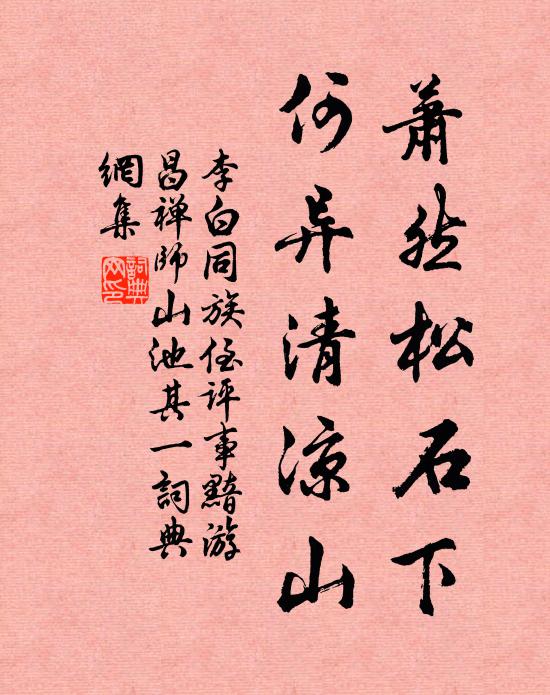 蕭然松石下
何异清凉山
李白同族侄评事黯游
昌禅师山池其一詞典
網集
詞典網印